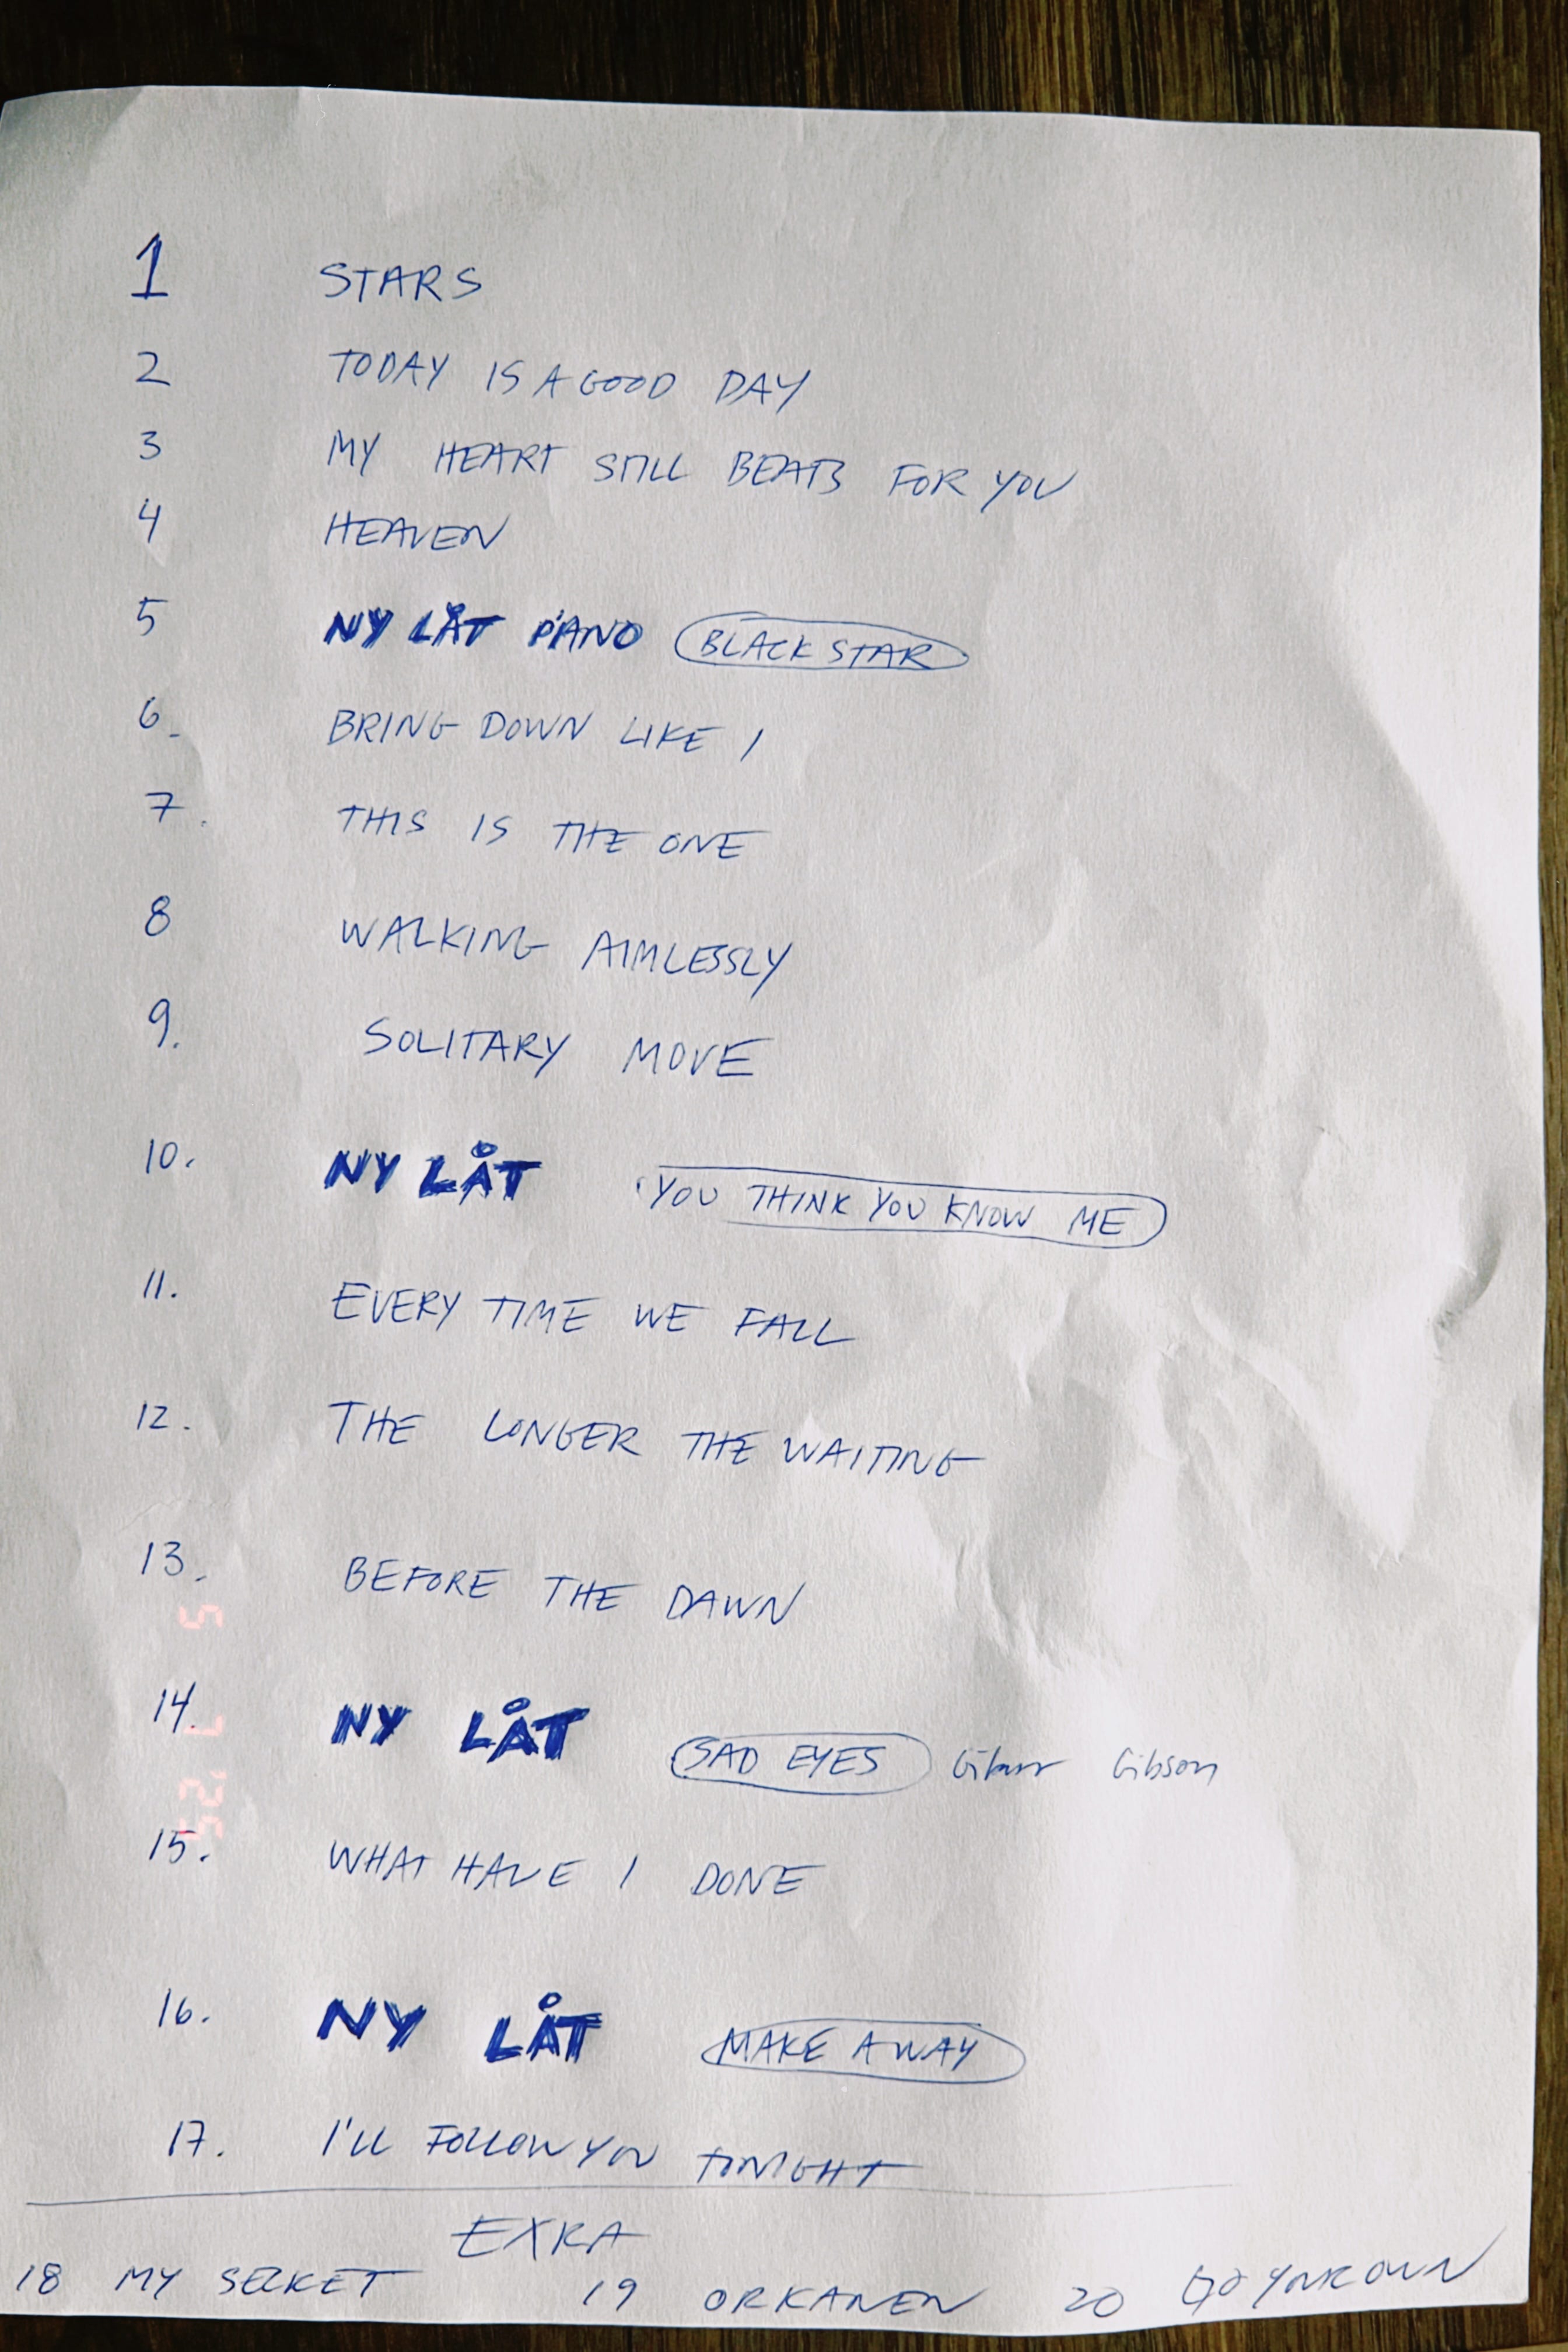 1 STARS
2 TODAY IS A GOOD DAY
3 MY HEART STILL BEATS FOR YOU
4 HEAVEN
5 NY LÅT PIANO BLACK STAR
6. BRING DOWN LIKE I
7. THIS IS THE ONE
8 WALKING AIMLESSLY
9. SOLITARY MOVE
10. NY LÅT YOU THINK YOU KNOW ME
11. EVERY TIME WE FALL
12. THE LONGER THE WAITING
13. BEFORE THE DAWN
14. NY LÅT SAD EYES Gibson
15. WHAT HAVE I DONE
16. NY LÅT MAKE AWAY
17. I'LL FOLLOW YOU TONIGHT
EXRA
18 MY SECRET 19 ORKANEN 20
5 7 '25